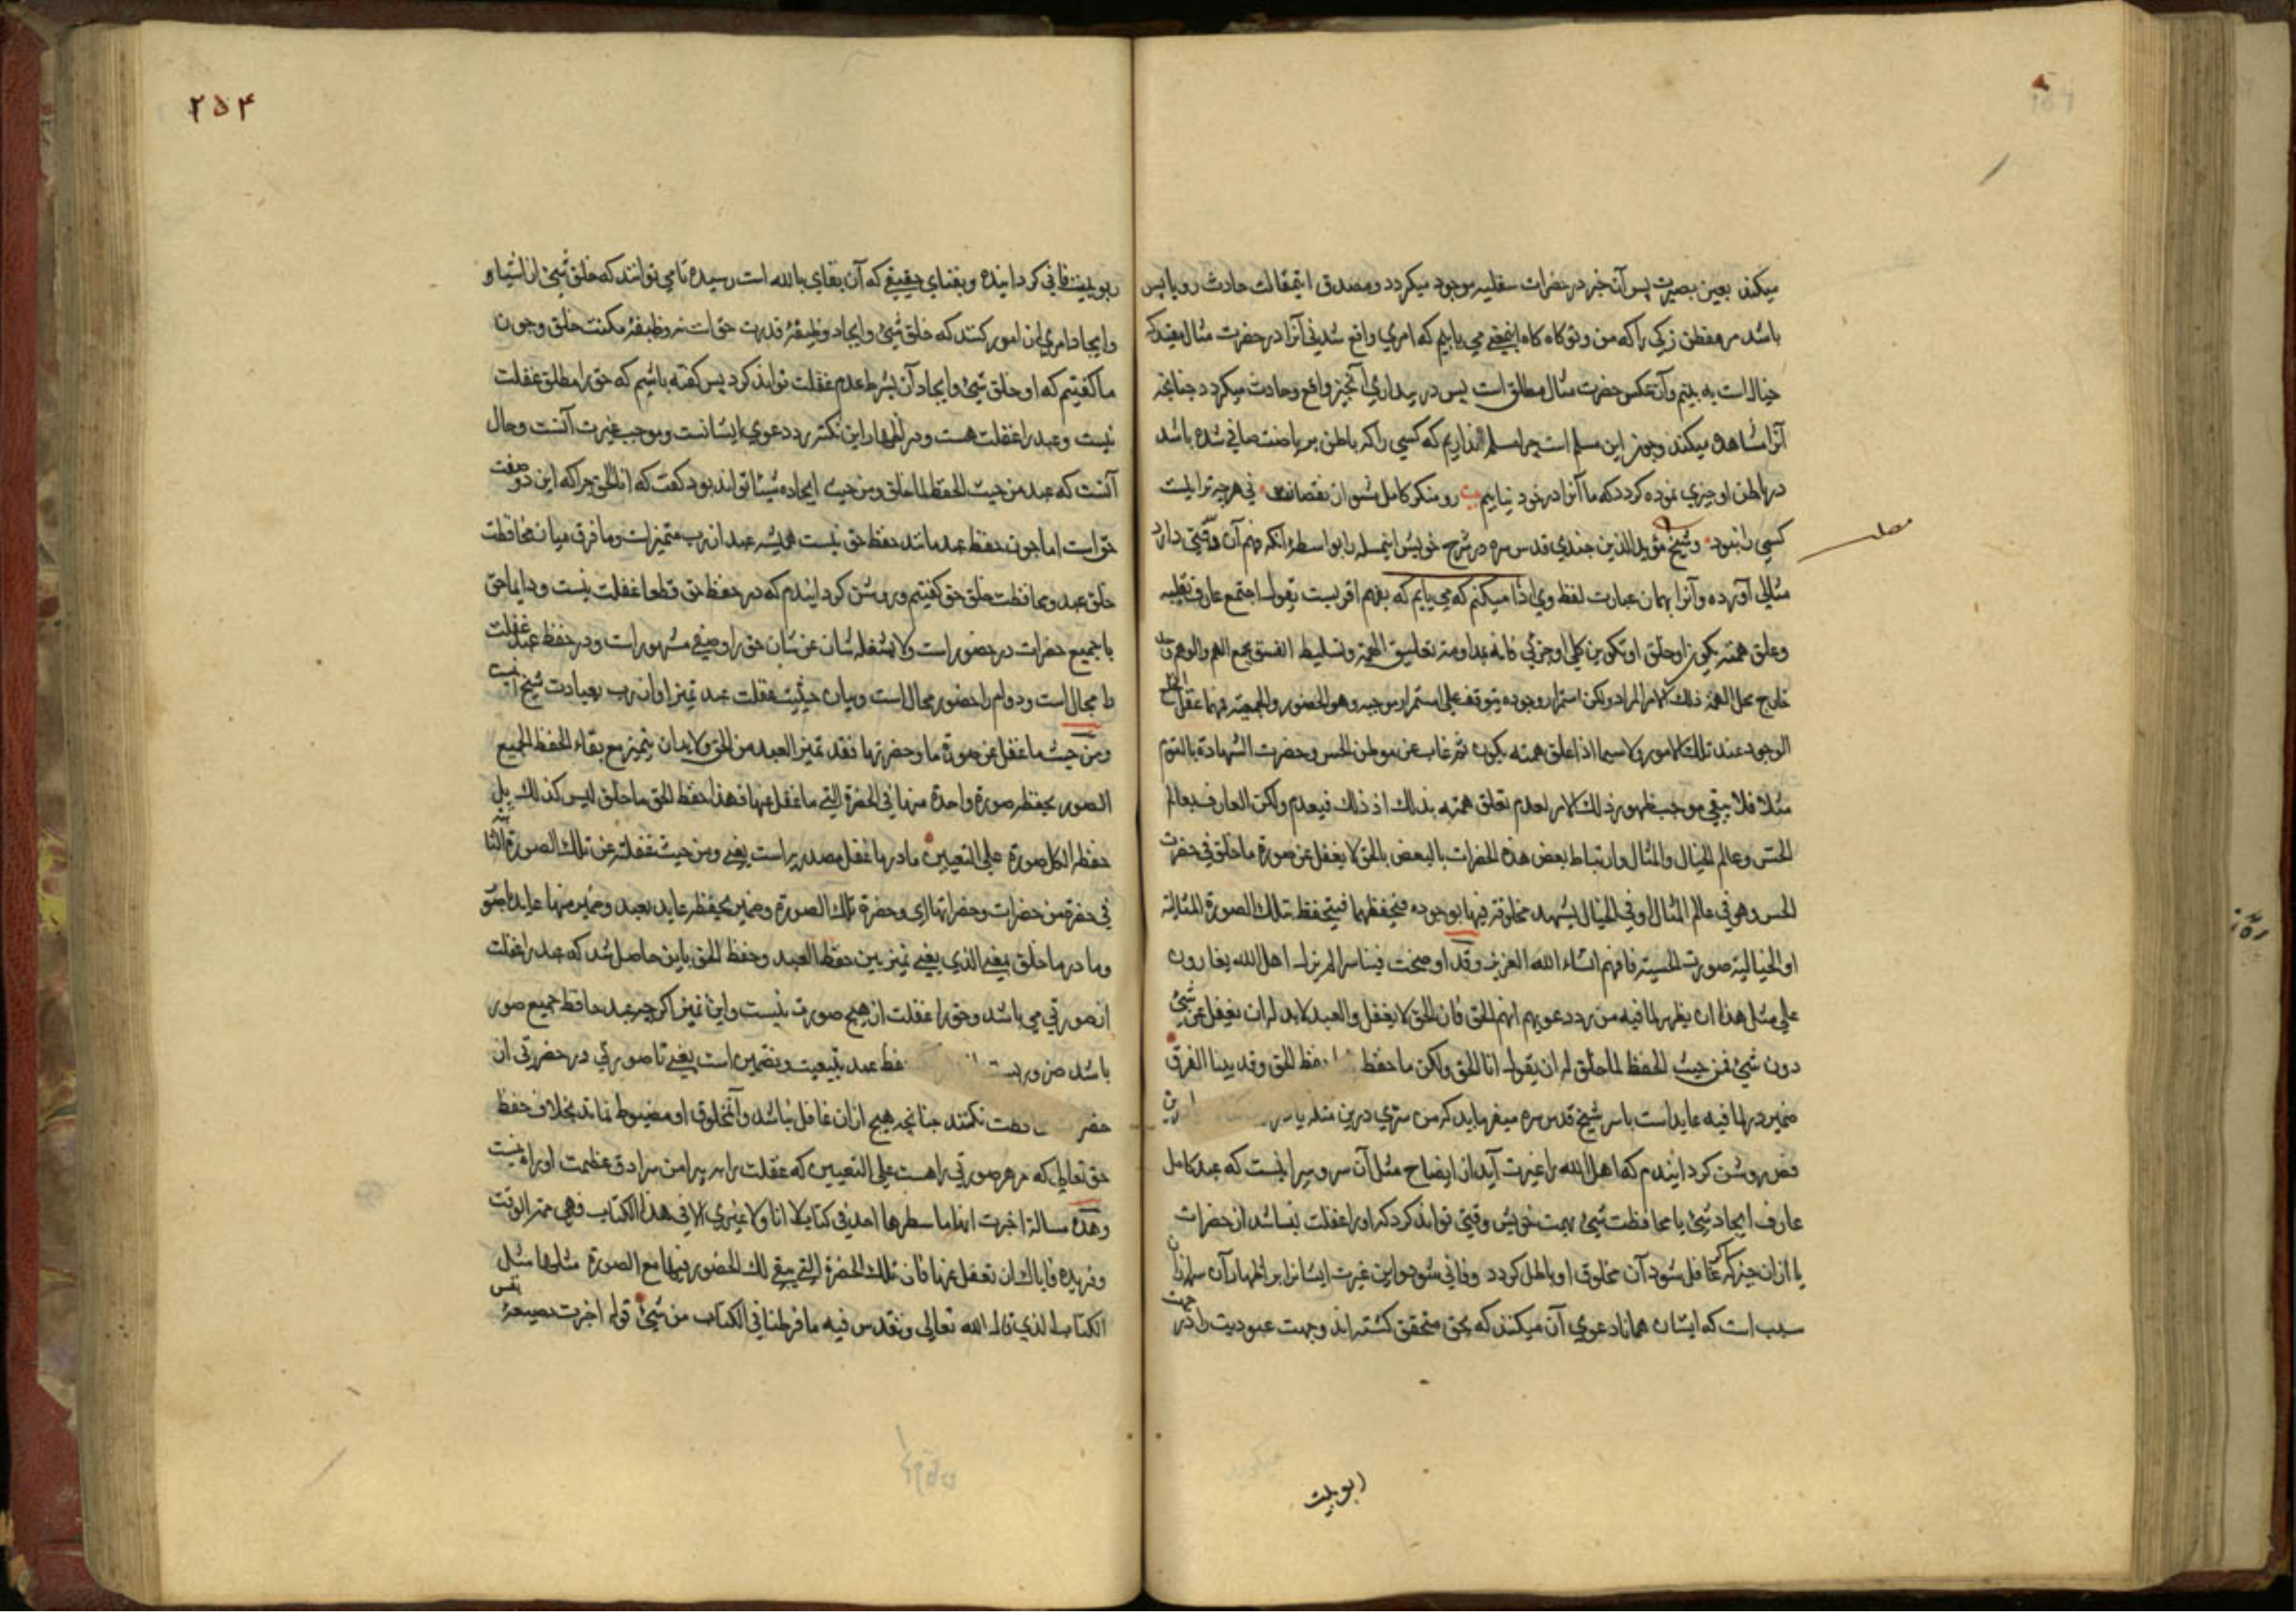 میکند بعین بصیرت پس آن خبر در حضرات سفلیه موجود میکردد ومصدق اینمقالت حادث رویا پس
باشد مر مفطن زکی را که من وتو کاه کاه اینمعنی می یابیم که امری واقع شدنی آنرا در حضرت مثال مقید که
خیالست به بینم وآن عکس حضرت مثال مطلق است پس در بیداری آنچیز واقع وحادث میکردد چنانچه
آنرا مشاهده میکند وچون این مسلم است چرا مسلم نداریم که کسی را که باطن بریاضت صافی شده باشد
در باطن او چیزی نموده کردد که ما آنرا در خود نیابیم رو منکر کامل مشو از نقصانت نی هرچه تراست
کسی را نبود وشیخ مؤید الدین جندی قدس سره در شرح خویش اینمسله را بواسطه آنکه فهم آن دقتی دارد
مثالی آورده وآنرا بهمان عبارت لفظ وی ادا میکنم که می یابم که بفهم اقربست یقول اجتمع عارف بقلبه
وعلق همته بکون او خلق او تکوین کلی او جزئی فانه بمداومة تعلیق الهمة وتسلیط النفس بجمع الهم والوهم
خارج محل الهمة ذلک الامر المراد ولکن استمرار وجوده یتوقف علی استمرار موجبه وهو الحضور والجمعیة فمهما غفل
الوجود عند تلک الامور ولا سیما اذا علق همته بکون ثم غاب عن موطن الحس وحضرت الشهادة بالنوم
مثلا فلا یبقی موجب ظهور ذلک الامر لعدم تعلق همته بذلک اذ ذلک فیعدم ولکن العارف بعالم
الحس وعالم الخیال والمثال وارتباط بعض هذه الحضرات بالبعض بالحق لا یغفل عن صورة ما خلق فی حضرت
الحس وهو فی عالم المثال او فی الخیال یشهد مخلوقه فیها بوجوده فیحفظهما فیتحفظ بتلک الصورة المثالیة
او الخیالیة صورت الحسیة فافهم انشاء الله العزیز وقد اوضحت فینا سرا لم یزل اهل الله یغارون
علی مثل هذا ان یظهر لما فیه من رد دعویهم انهم الحق فان الحق لا یغفل والعبد لابد له ان یغفل عن شیئ
دون شیئ فمن حیث الحفظ لما خلق له ان یقول انا الحق ولکن ما حفظ حفظ الحق وقد بینا الفرق
ضمیر در لما فیه عایداست باسر شیخ قدس سره میفرماید که من سری درین مسله
فص روشن کردانیدم که اهل الله را غیرت آید از ایضاح مثل آن سر وسر اینست که عبد کامل
عارف ایجاد شیئ یا محافظت شیئ بهمت خویش وقتی تواند کرد که اورا غفلت نباشد از حضرات
یا ازان چیز که اکر غافل شود آن مخلوق او باطل کردد وفانی شود واین غیرت ایشانرا بر اظهار آن سر ازان
سبب است که ایشان همانا دعوی آن میکنند که بحق متحقق کشته اند وجهت عبودیت را در جهت
ربوبیت
ربوبیت فانی کردانیده وبفنای حقیقی که آن بقای بالله است رسیده تا می توانند که خلق شیئ از اشیا و
وایجاد امری از امور کنند که خلق شیئ وایجاد وظیفهٔ قدرت حق است نه وظیفهٔ مکنت خلق وچون
ما کفتیم که او خلق شیئ وایجاد آن بشرط عدم غفلت تواند کرد پس کفته باشیم که حق را مطلق غفلت
نیست وعبد را غفلت هست ودر اظهار این نکته رد دعوی ایشانست وموجب غیرت آنست وحال
آنست که عبد من حیث الحفظ لما خلق ومن حیث ایجاده شیئا تواند بود کفت که انا الحق چرا که این دو صفت
حق است اما چون حفظ عبد مانند حفظ حق نیست همیشه عبد از رب متمیزاست وما فرق میان محافظت
خلق عبد ومحافظت خلق حق کفتیم وروشن کردانیدم که در حفظ حق قطعا غفلت نیست ودایما حق
با جمیع حضرات در حضور است ولا یشغله شان عن شان حق را وصفی مشهوراست ودر حفظ عبد غفلت
را مجال است ودوام را حضور محال است وبیان حیثیت غفلت عبد تمیز او از رب بعبارت شیخ اینست
ومن حیث ما غفل عن صورة ما وحضرتها فقد تمیز العبد من الحق ولابد ان یتمیز مع بقاء الحفظ لجمیع
الصور بحفظه صورة واحدة منها فی الحضرة التی ما غفل عنها فهذا حفظ الحق ما خلق لیس کذلک بل
حفظه الکل صورة علی التعیین ما در ما غفل مصدریه است یعنی ومن حیث غفلته عن تلک الصورة الثابتة
فی حضرة من حضرات وحضراتها ای وحضرة تلک الصورة وضمیر بحفظه عاید بعبد وضمیر منها عاید باصور
وما در ما خلق بمعنی الذی یعنی تمیز بین حفظ العبد وحفظ الحق باین حاصل شد که عبد را غفلت
از صورتی می باشد وحق را غفلت از هیچ صورت نیست واین تمیز اکر چه عبد حافظ جمیع صور
باشد ضروریست حفظ عبد بتبعیت وتضمین است یعنی تا صورتی در حضرتی از
حضر فظت نکنند چنانچه هیچ ازان غافل نباشد وآنمخلوق او مضبوط نماند بخلاف حفظ
حق تعالی که مر هر صورتی راهست علی التعیین که غفلت را به پیرامن سرادق عظمت او راه نیست
وهذه مسالة اخبرت انه ما سطرها احد فی کتاب لا انا ولا غیری الا فی هذا الکتاب فهی یتمة الوقت
وفریده فایاک ان تغفل عنها فان تلک الحضرة التی یبقی لک الحضور فیها مع الصورة مثلها مثل
الکتاب الذی قال الله تعالی وتقدس فیه ما فرطنا فی الکتاب من شیئ قوله اخبرت بصیغهٔ نفس
۲۵۴